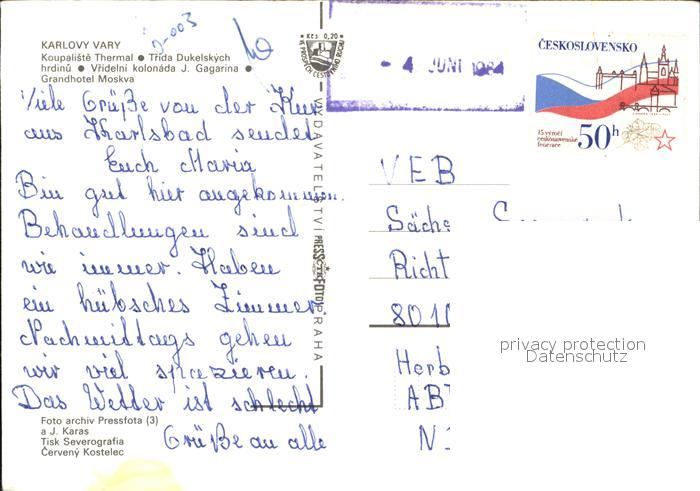 KARLOVY VARY
Koupaliště Thermal ● Třída Dukelských
hrdinů ● Vřídelní kolonáda J. Gagarina ●
Grandhotel Moskva
Viele Grüße von der Kur
aus Karlsbad sendet
Euch Maria
Bin gut hier angekommen.
Behandlungen sind
wie immer. Haben
ein hübsches Zimmer
Nachmittags gehen
wir viel spazieren.
Das Wetter ist schlecht
Grüße an alle
Foto archiv Pressfota (3)
a J. Karas
Tisk Severografia
Červený Kostelec
Kčs 0,20
VYDAVATELSTVÍ PRESSFOTO PRAHA
- 4 JUNI 1984
ČESKOSLOVENSKO
15.výročí
československé
federace
50h
VEB
Sächs
Richt
801
Herb
AB
N
privacy protection
Datenschutz